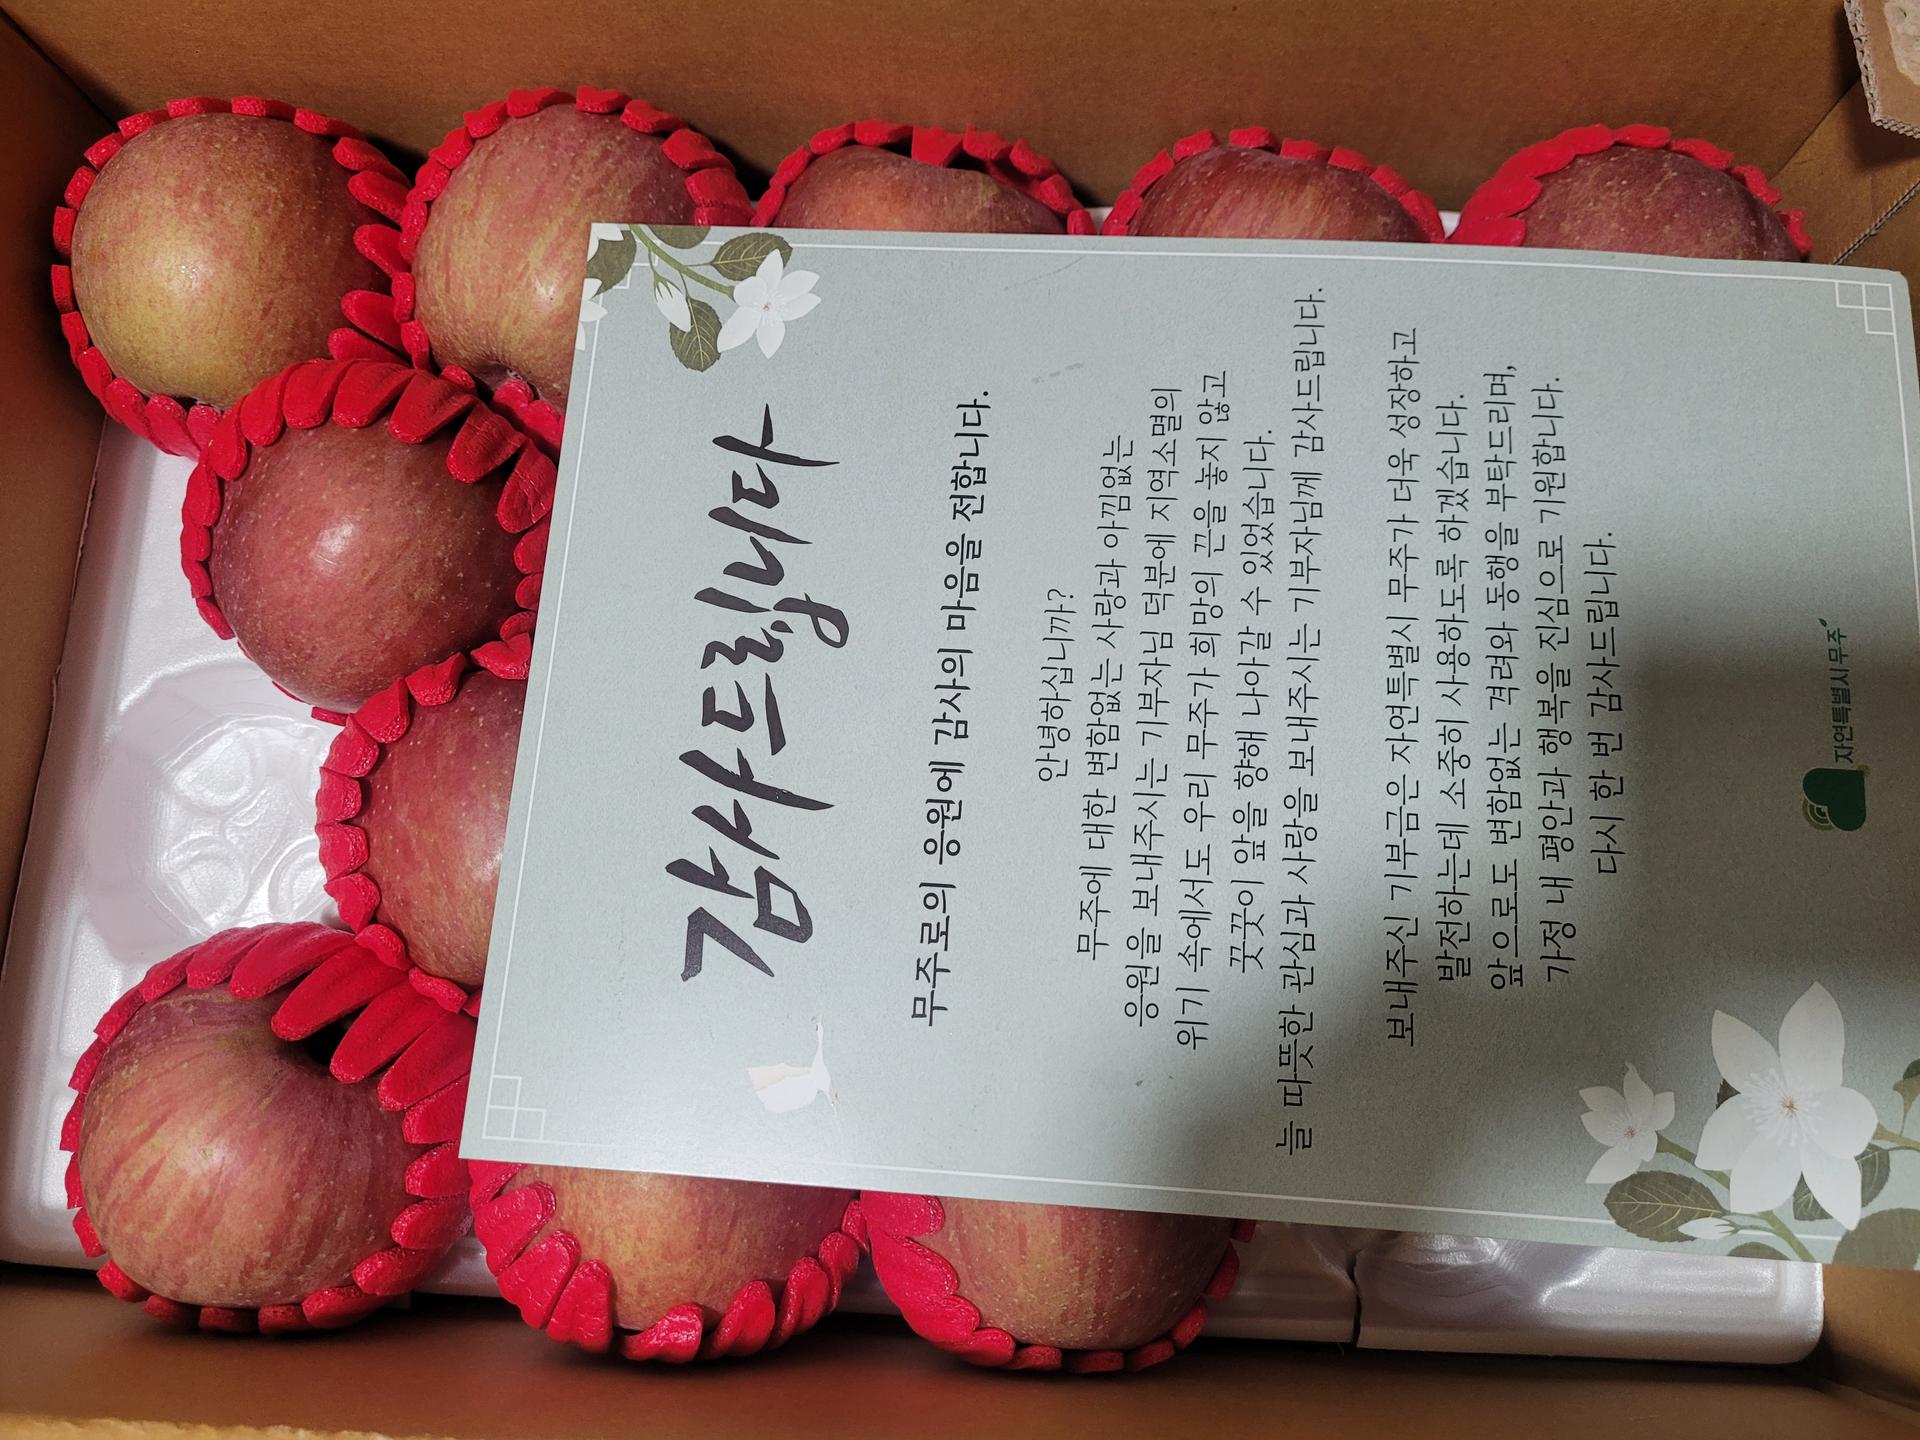 감사드립니다
무주로의 응원에 감사의 마음을 전합니다.
안녕하십니까?
무주에 대한 변함없는 사랑과 아낌없는
응원을 보내주시는 기부자님 덕분에 지역소멸의
위기 속에서도 우리 무주가 희망의 끈을 놓지 않고
꿋꿋이 앞을 향해 나아갈 수 있었습니다.
늘 따뜻한 관심과 사랑을 보내주시는 기부자님께 감사드립니다.
보내주신 기부금은 자연특별시 무주가 더욱 성장하고
발전하는데 소중히 사용하도록 하겠습니다.
앞으로도 변함없는 격려와 동행을 부탁드리며,
가정 내 평안과 행복을 진심으로 기원합니다.
다시 한 번 감사드립니다.
자연특별시 무주